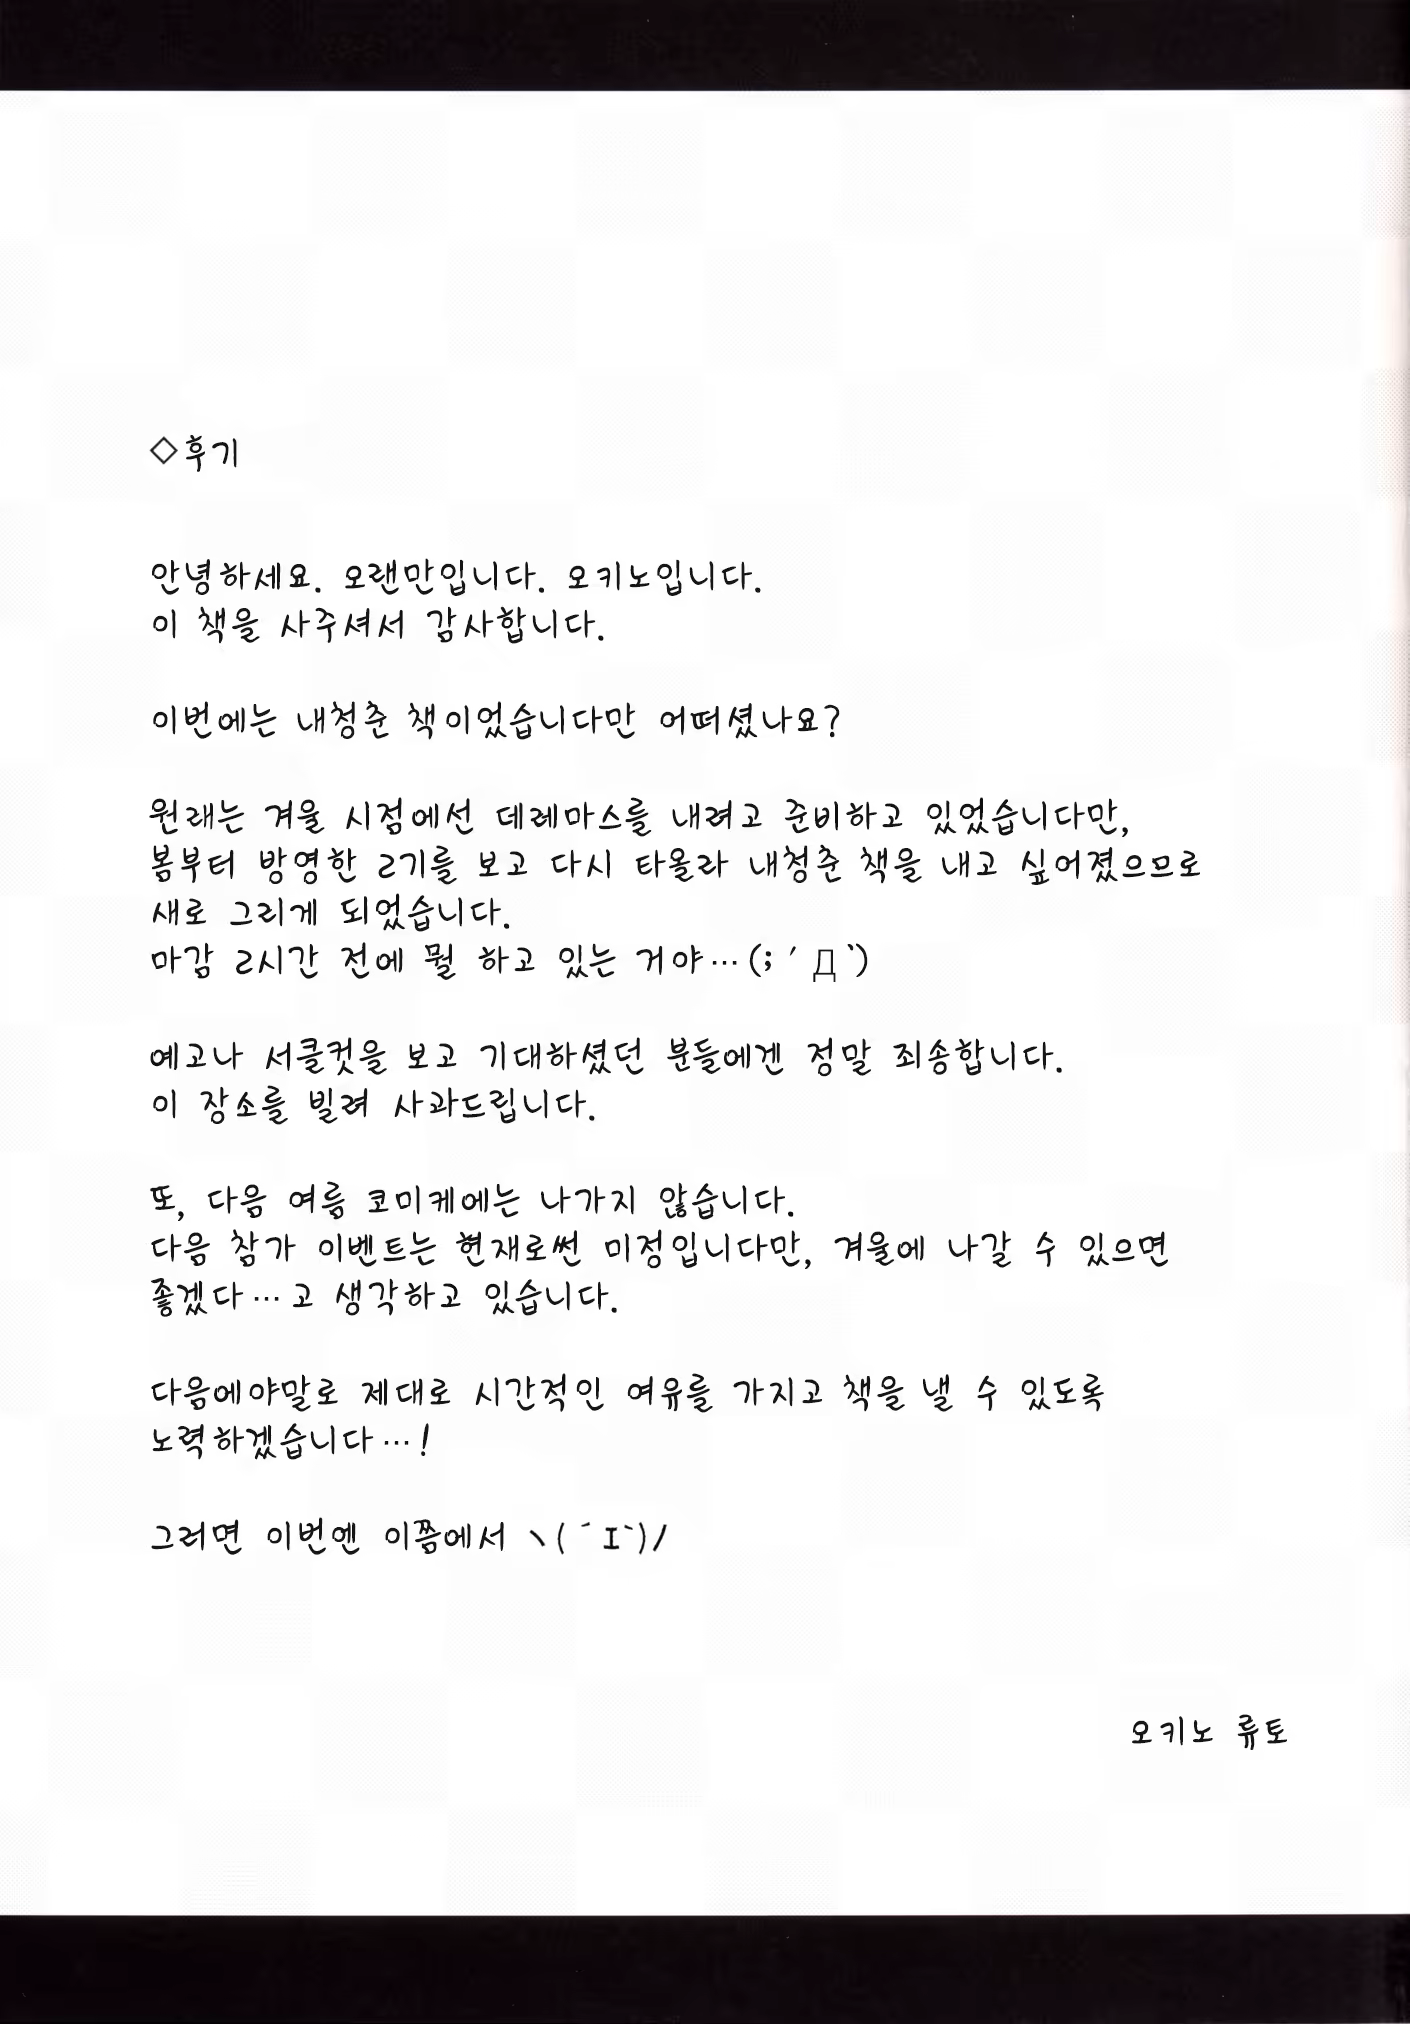 ◇후기
안녕하세요. 오랜만입니다. 오키노입니다.
이 책을 사주셔서 감사합니다.
이번에는 내청춘 책이었습니다만 어떠셨나요?
원래는 겨울 시점에선 데레마스를 내려고 준비하고 있었습니다만,
봄부터 방영한 2기를 보고 다시 타올라 내청춘 책을 내고 싶어졌으므로
새로 그리게 되었습니다.
마감 2시간 전에 뭘 하고 있는 거야…(;´Д`)
예고나 서클컷을 보고 기대하셨던 분들에겐 정말 죄송합니다.
이 장소를 빌려 사과드립니다.
또, 다음 여름 코미케에는 나가지 않습니다.
다음 참가 이벤트는 현재로썬 미정입니다만, 겨울에 나갈 수 있으면
좋겠다…고 생각하고 있습니다.
다음에야말로 제대로 시간적인 여유를 가지고 책을 낼 수 있도록
노력하겠습니다…!
그러면 이번엔 이쯤에서 ヽ(´エ`)ノ
오키노 류토